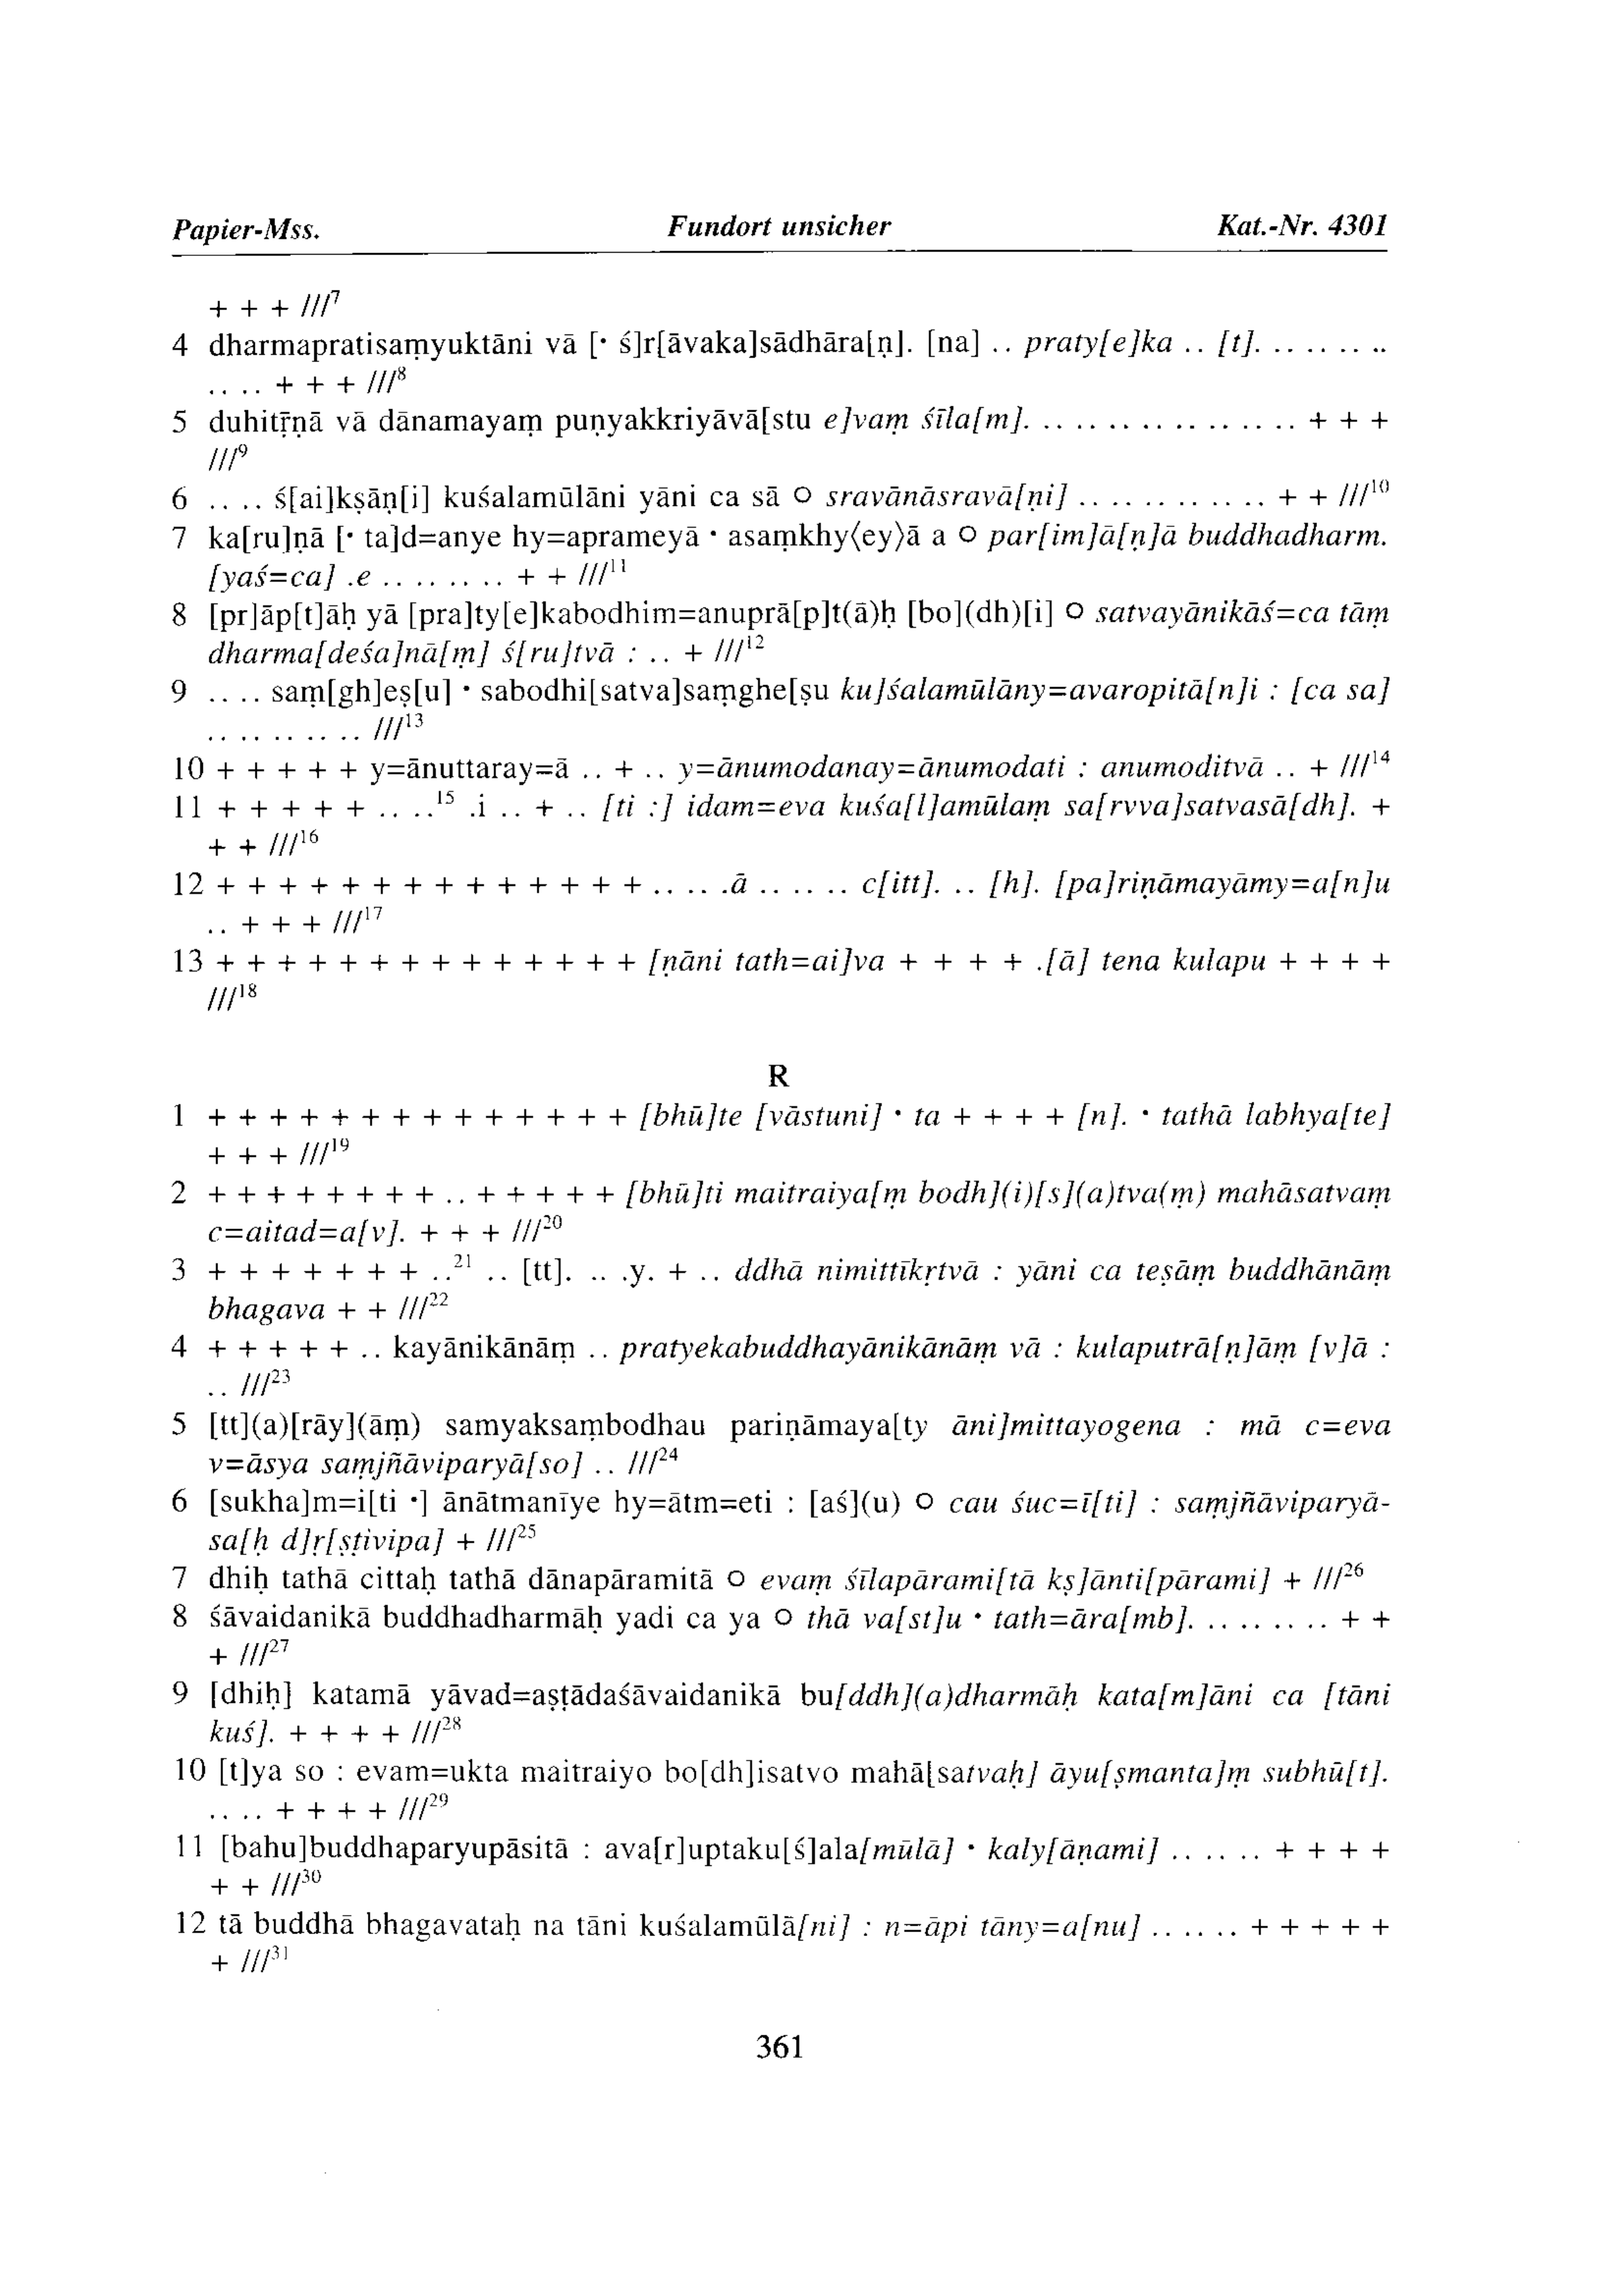 Papier-Mss. Fundort unsicher Kat.-Nr. 4301
+ + + ///7
4 dharmapratisaṃyuktāni vā [• ś]r[āvaka]sādhāra[ṇ]. [na] .. praty[e]ka .. [t]. .. .. .. ..
.. .. + + + ///8
5 duhitṝṇā vā dānamayaṃ puṇyakkriyāvā[stu e]vaṃ śīla[m]. .. .. .. .. .. .. .. .. + + +
///9
6 .. .. ś[ai]kṣāṇ[i] kuśalamūlāni yāni ca sā ○ sravānāsravā[ṇi] .. .. .. .. .. .. + + ///10
7 ka[ru]ṇā [• ta]d=anye hy=aprameyā • asaṃkhy⟨ey⟩ā a ○ par[im]ā[ṇ]ā buddhadharm.
[yaś=ca] .e .. .. .. .. + + ///11
8 [pr]āp[t]āḥ yā [pra]ty[e]kabodhim=anuprā[p]t(ā)ḥ [bo](dh)[i] ○ satvayānikāś=ca tāṃ
dharma[deśa]nā[ṃ] ś[ru]tvā : .. + ///12
9 .. .. saṃ[gh]eṣ[u] • sabodhi[satva]saṃghe[ṣu ku]śalamūlāny=avaropitā[n]i : [ca sa]
.. .. .. .. .. ///13
10 + + + + + y=ānuttaray=ā .. + .. y=ānumodanay=ānumodati : anumoditvā .. + ///14
11 + + + + + .. ..15 .i .. + .. [ti :] idam=eva kuśa[l]amūlaṃ sa[rvva]satvasā[dh]. +
+ + ///16
12 + + + + + + + + + + + + + + .. .. .ā .. .. .. c[itt]. .. [h]. [pa]riṇāmayāmy=a[n]u
.. + + + ///17
13 + + + + + + + + + + + + + + [ṇāni tath=ai]va + + + + .[ā] tena kulapu + + + +
///18
R
1 + + + + + + + + + + + + + + [bhū]te [vāstuni] • ta + + + + [n]. • tathā labhya[te]
+ + + ///19
2 + + + + + + + + .. + + + + + [bhū]ti maitraiya[ṃ bodh](i)[s](a)tva(ṃ) mahāsatvaṃ
c=aitad=a[v]. + + + ///20
3 + + + + + + + ..21 .. [tt]. .. .y. + .. ddhā nimittīkṛtvā : yāni ca teṣāṃ buddhānāṃ
bhagava + + ///22
4 + + + + + .. kayānikānāṃ .. pratyekabuddhayānikānāṃ vā : kulaputrā[ṇ]āṃ [v]ā :
.. ///23
5 [tt](a)[rāy](āṃ) samyaksaṃbodhau pariṇāmaya[ty āni]mittayogena : mā c=eva
v=āsya saṃjñāviparyā[so] .. ///24
6 [sukha]m=i[ti •] ānātmanīye hy=ātm=eti : [aś](u) ○ cau śuc=ī[ti] : saṃjñāviparyā-
sa[ḥ d]ṛ[ṣṭivipa] + ///25
7 dhiḥ tathā cittaḥ tathā dānapāramitā ○ evaṃ śīlapārami[tā kṣ]ānti[pārami] + ///26
8 śāvaidanikā buddhadharmāḥ yadi ca ya ○ thā va[st]u • tath=āra[mb]. .. .. .. .. + +
+ ///27
9 [dhiḥ] katamā yāvad=aṣṭādaśāvaidanikā bu[ddh](a)dharmāḥ kata[m]āni ca [tāni
kuś]. + + + + ///28
10 [t]ya so : evam=ukta maitraiyo bo[dh]isatvo mahā[satvaḥ] āyu[ṣmanta]ṃ subhū[t].
.. .. + + + + ///29
11 [bahu]buddhaparyupāsitā : ava[r]uptaku[ś]ala[mūlā] • kaly[āṇami] .. .. .. + + + +
+ + ///30
12 tā buddhā bhagavataḥ na tāni kuśalamūlā[ni] : n=āpi tāny=a[nu] .. .. .. + + + + +
+ ///31
361